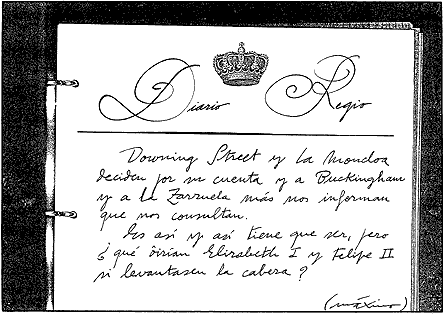 Diario Regio
Downing Street y La Moncloa
deciden por su cuenta y a Buckingham
y a La Zarzuela más nos informan
que nos consultan.
Es así y así tiene que ser, pero
¿qué dirían Elizabeth I y Felipe II
si levantasen la cabeza?
(máximo)